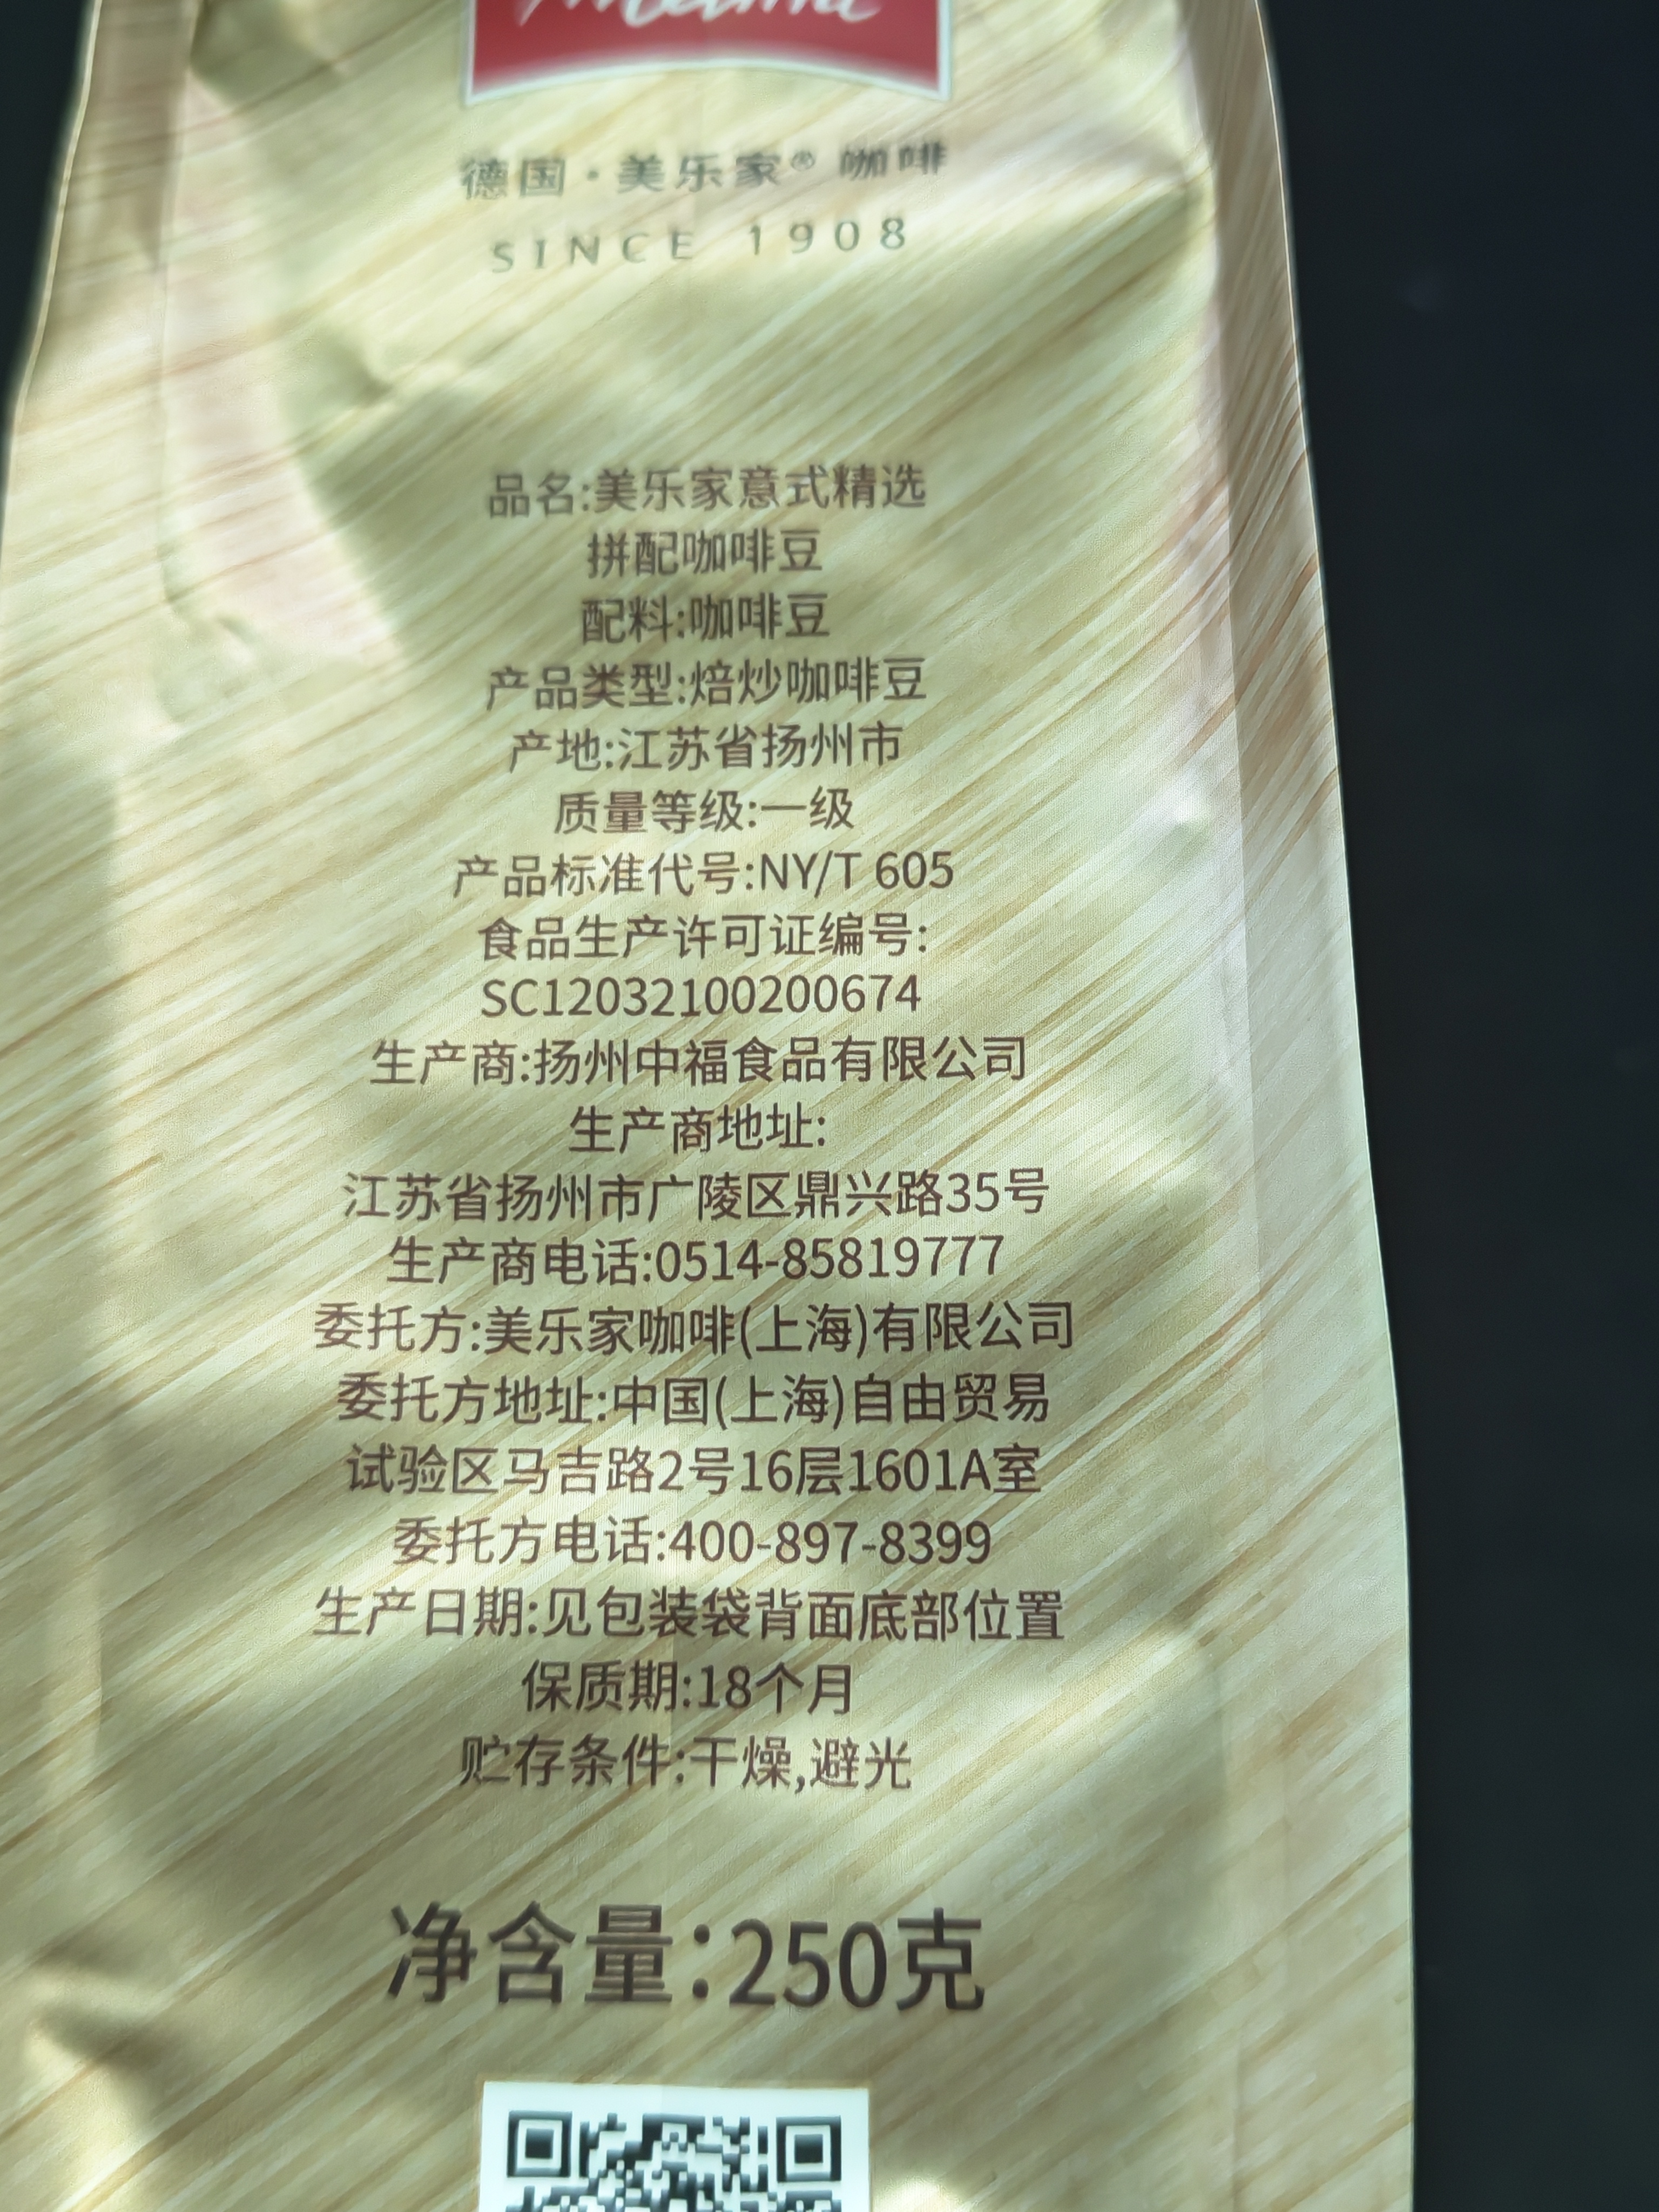 德国·美乐家® 咖啡
SINCE 1908
品名:美乐家意式精选
拼配咖啡豆
配料:咖啡豆
产品类型:焙炒咖啡豆
产地:江苏省扬州市
质量等级:一级
产品标准代号:NY/T 605
食品生产许可证编号:
SC12032100200674
生产商:扬州中福食品有限公司
生产商地址:
江苏省扬州市广陵区鼎兴路35号
生产商电话:0514-85819777
委托方:美乐家咖啡(上海)有限公司
委托方地址:中国(上海)自由贸易
试验区马吉路2号16层1601A室
委托方电话:400-897-8399
生产日期:见包装袋背面底部位置
保质期:18个月
贮存条件:干燥,避光
净含量:250克